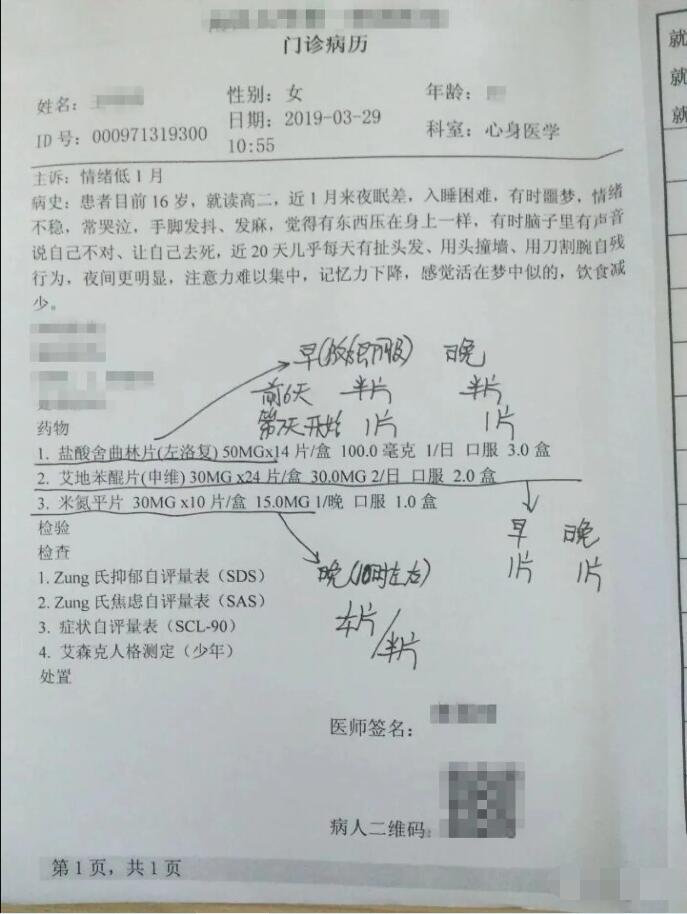 门诊病历
姓名：
性别：女
年龄：
ID号：000971319300
日期：2019-03-29
10:55
科室：心身医学
主诉：情绪低1月
病史：患者目前16岁，就读高二，近1月来夜眠差，入睡困难，有时噩梦，情绪
不稳，常哭泣，手脚发抖、发麻，觉得有东西压在身上一样，有时脑子里有声音
说自己不对、让自己去死，近20天几乎每天有扯头发、用头撞墙、用刀割腕自残
行为，夜间更明显，注意力难以集中，记忆力下降，感觉活在梦中似的，饮食减
少。
早(饭后即服) 晚
前6天 半片 半片
第7天开始 1片 1片
药物
1. 盐酸舍曲林片(左洛复) 50MGx14片/盒 100.0毫克 1/日 口服 3.0盒
2. 艾地苯醌片(申维) 30MG x24片/盒 30.0MG 2/日 口服 2.0盒
3. 米氮平片 30MG x10片/盒 15.0MG 1/晚 口服 1.0盒
检验
检查
早 晚
1片 1片
1. Zung氏抑郁自评量表（SDS）
2. Zung氏焦虑自评量表（SAS）
3. 症状自评量表（SCL-90）
4. 艾森克人格测定（少年）
处置
晚(10时左右)
半片
医师签名：
病人二维码：
第1页，共1页
就
就
就